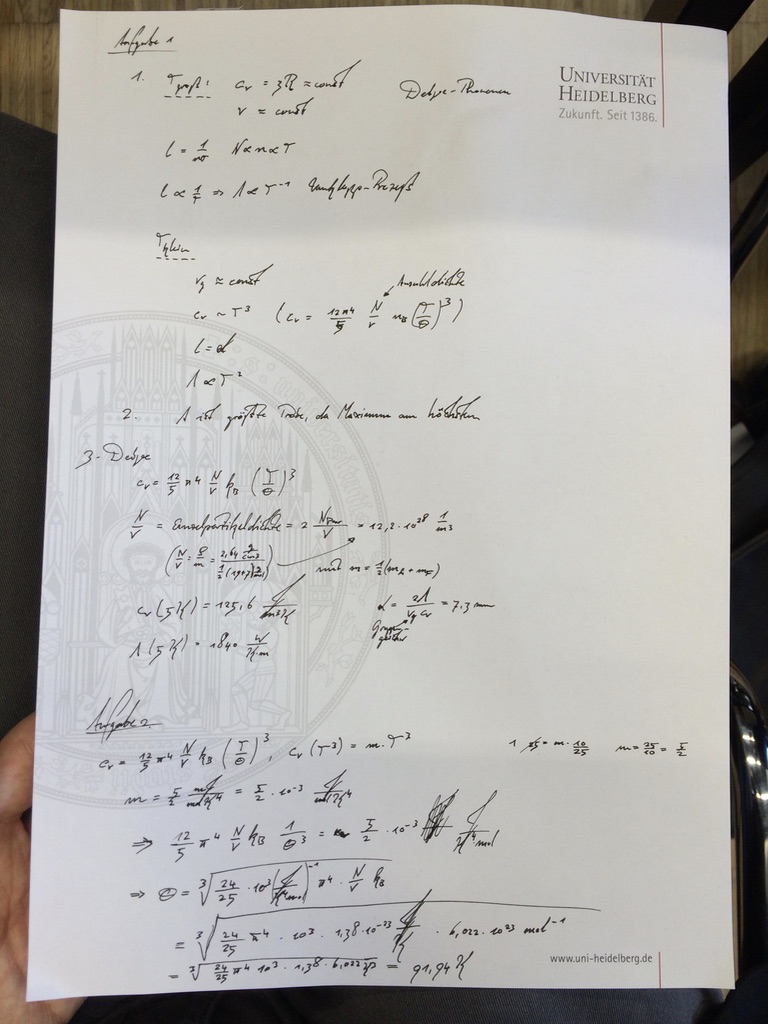 Aufgabe 1
UNIVERSITÄT
HEIDELBERG
Zukunft. Seit 1386.
1. T groß: c_v = 3R ≈ const Debye-Phononen
v ≈ const
l = 1/nσ N ∝ n ∝ T
l ∝ 1/T ⇒ Λ ∝ T^-1 Umklapp-Prozeß
T klein
v_g ≈ const Anzahldichte
c_v ~ T^3 (c_v = 12π^4/5 N/V k_B (T/Θ)^3)
l = d
2. Λ ist größte Probe, da Maximum am höchsten
3. Debye
c_v = 12/5 π^4 N/V k_B (T/Θ)^3
N/V = Einzelpartikeldichte = 2 /V = 12,2 · 10^28 1/m^3
mit m = 1/2 (m_L + m_F)
c_v (5K) = 125,6 J/m^3K d = 3Λ/v_g c_v = 7.3 mm
Λ (5K) = 1840 W/K·m
Aufgabe 2
c_v = 12/5 π^4 N/V k_B (T/Θ)^3, c_v (T^3) = m · T^3 m = 25/10 = 5/2
m = 5/2 mJ/molK^4 = 5/2 · 10^-3 J/molK^4
⇒ 12/5 π^4 N/V k_B 1/Θ^3 = 5/2 · 10^-3 J/K^4mol
⇒ Θ = ∛(24/25 · 10^3 (J/K^4mol)^-1 π^4 · N/V k_B)
= ∛(24/25 π^4 · 10^3 · 1,38 · 10^-23 J/K · 6,022 · 10^23 mol^-1)
= ∛(24/25 π^4 10^3 · 1,38 · 6,022) = 91,94 K
www.uni-heidelberg.de